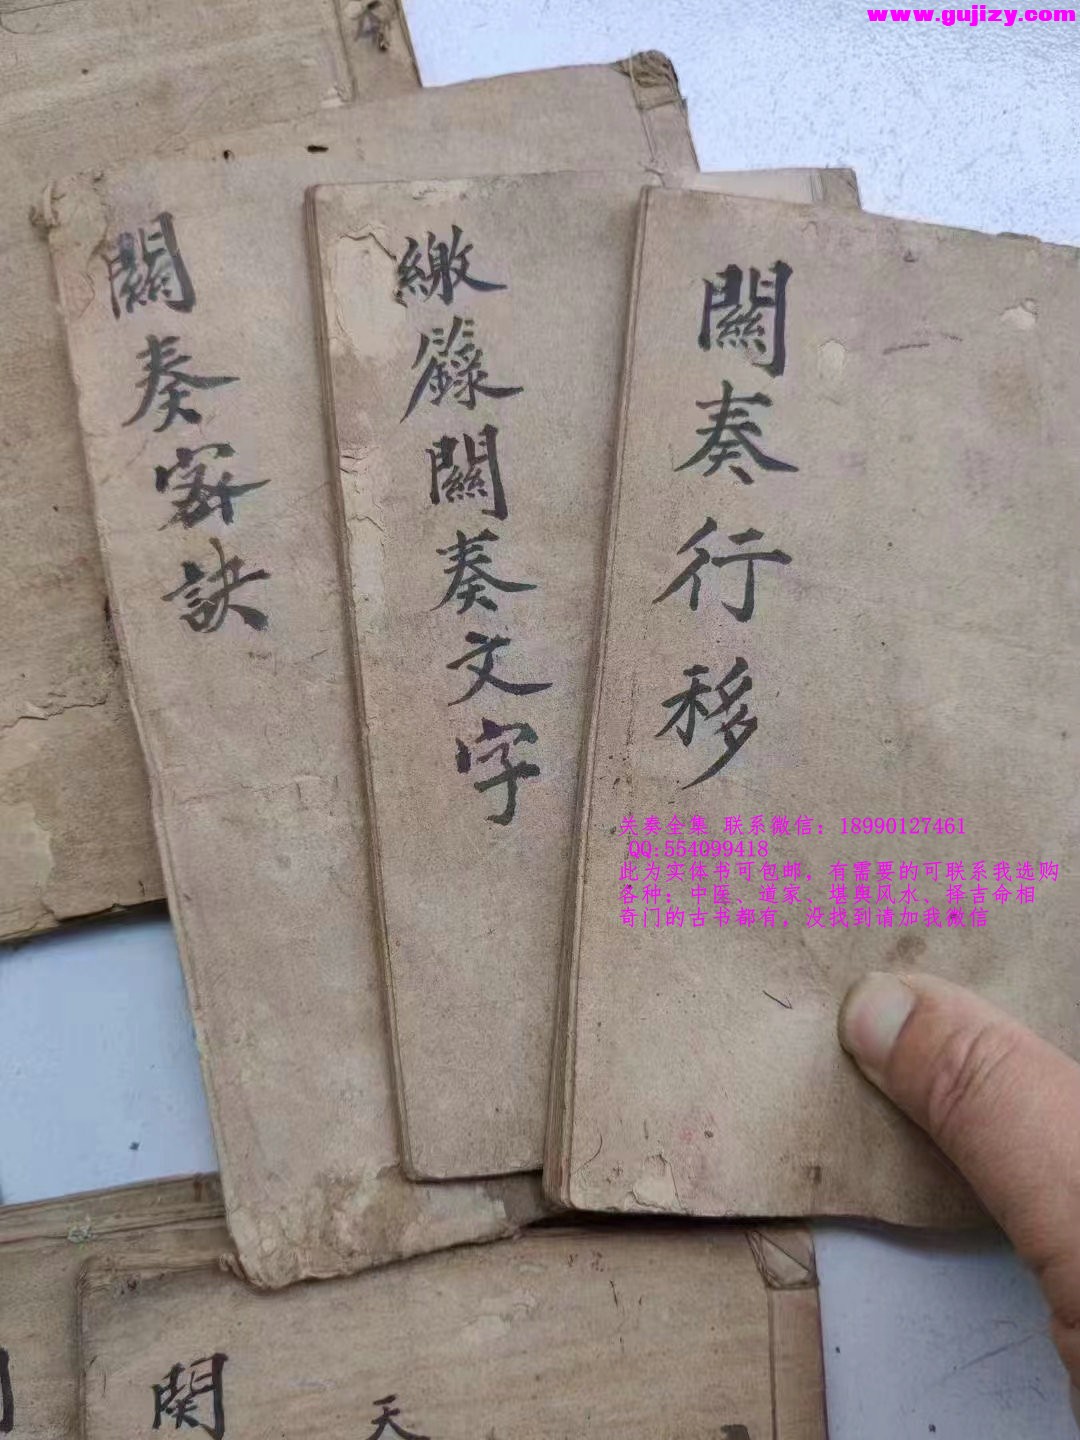 www.gujizy.com
關奏密訣
繳籙關奏文字
關奏行移
关奏全集 联系微信：18990127461
QQ:554099418
此为实体书可包邮，有需要的可联系我选购
各种：中医、道家、堪舆风水、择吉命相
奇门的古书都有，没找到请加我微信
関
天